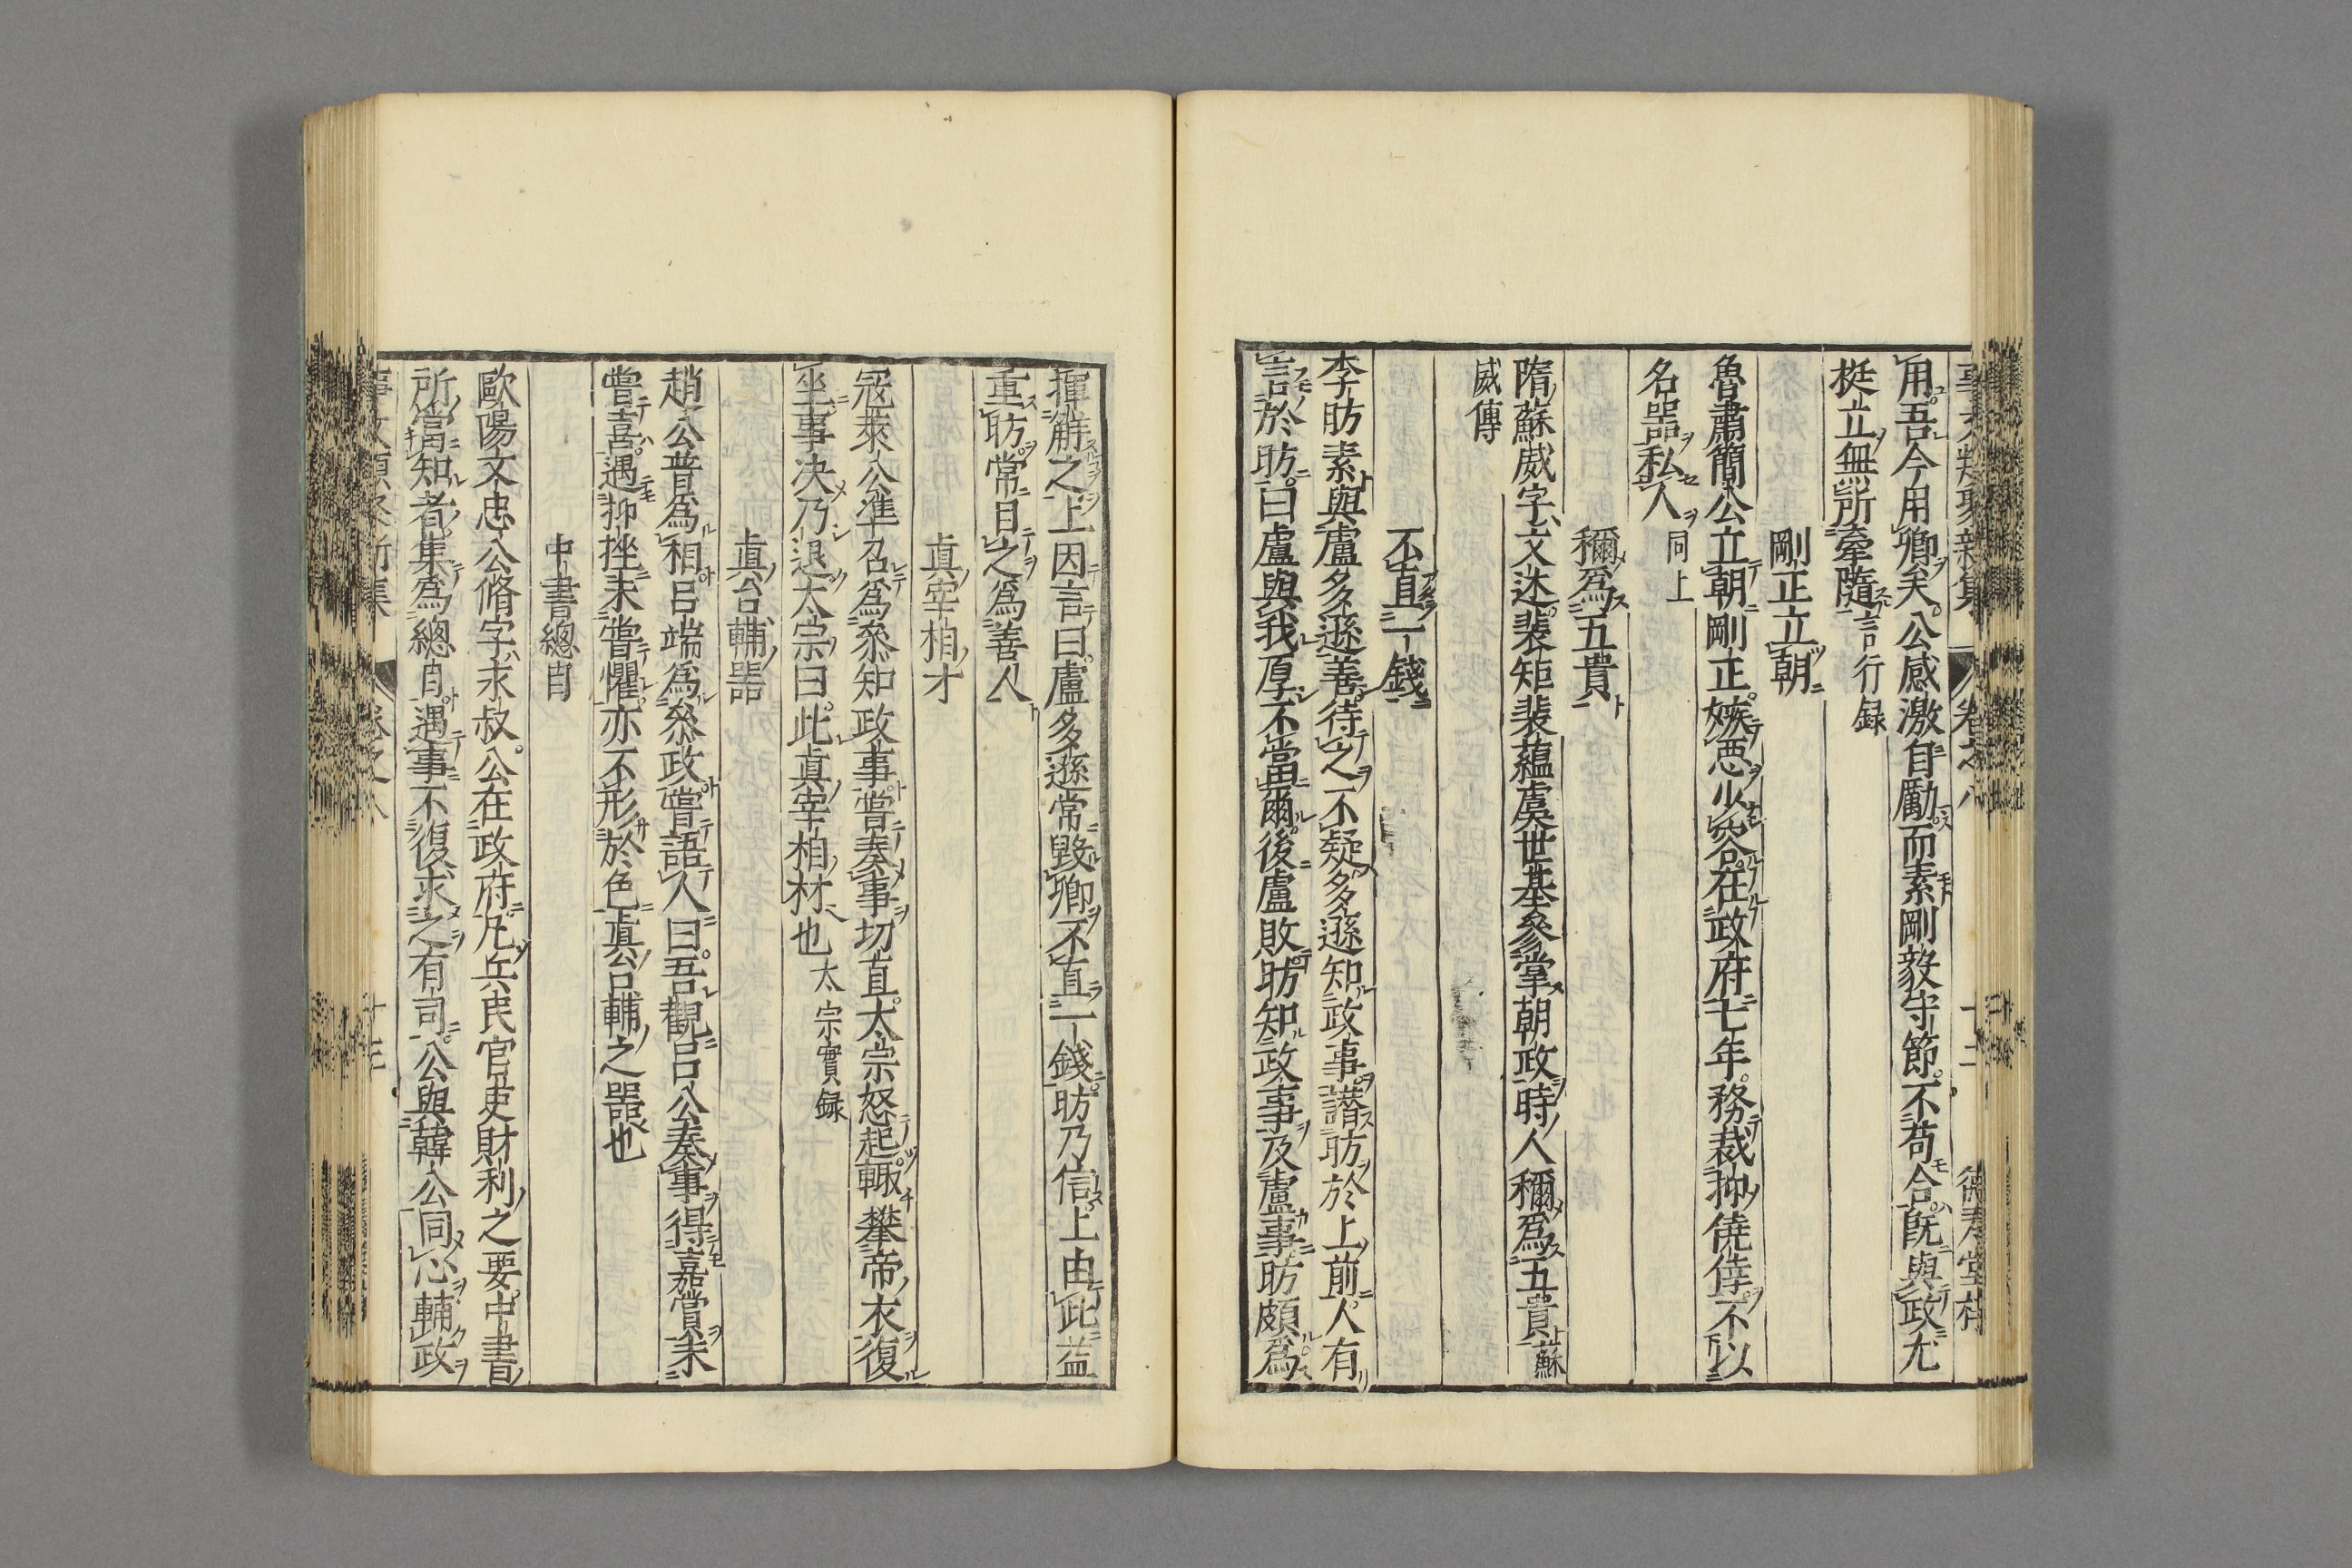 用吾今用卿矣公感激自勵而素剛毅守節不苟合既與政尤
挺立無所牽隨言行録
剛正立朝
魯肅簡公立朝剛正嫉悪少容在政府七年務裁抑僥倖不以
名器私人同上
稱爲五貴
隋蘇威字文述裴矩裴蘊虞世基參掌朝政時人稱爲五貴蘇
威傳
不直一錢
李昉素與盧多遜善待之不疑多遜知政事譛昉於上前人有
言於昉曰盧與我厚不當爾後盧敗昉知政事及盧事昉頗爲
揮解之上因言曰盧多遜常毀卿不直一錢昉乃信上由此益
重昉常目之爲善人
真宰相才
冦萊公準召爲叅知政事嘗奏事切直太宗怒起輙攀帝衣復
坐事决乃退太宗曰此真宰相材也太宗實録
真台輔器
趙公普爲相吕端爲叅政嘗語人曰吾觀吕公奏事得嘉賞未
嘗喜遇抑挫未嘗懼亦不形於色真台輔之器也
中書總目
歐陽文忠公脩字永叔公在政府凡兵民官吏財利之要中書
所當知者集爲總目遇事不復求之有司公與韓公同心輔政